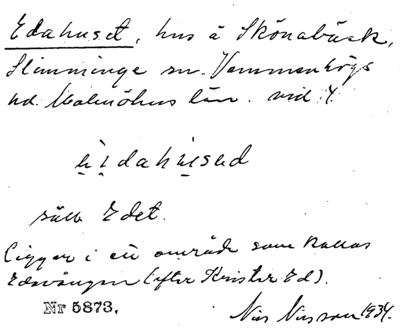 Edahuset, hus å Skönabäck,
Slimminge sn. Vemmenhögs
hd. Malmöhus län. vid
e̤i̤dahṳsed
Edet.
Ligger i ett område som kallas
Edavången (efter Krister Ed).
Nr 5873.
Nils Nilsson 1934.